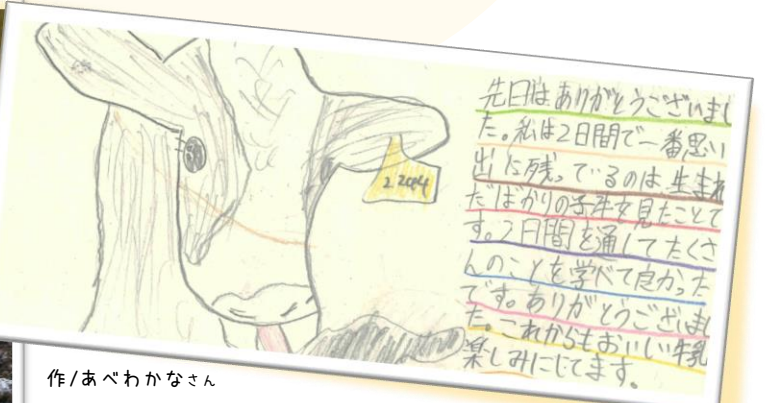 2.204
先日はありがとうございまし
た。私は2日間で一番思い
出に残っているのは生まれ
たばかりの子牛を見たことで
す。2日間を通してたくさ
んのことを学べて良かった
です。ありがとうございまし
た。これからもおいしい牛乳
楽しみにしてます。
作/あべわかなさん